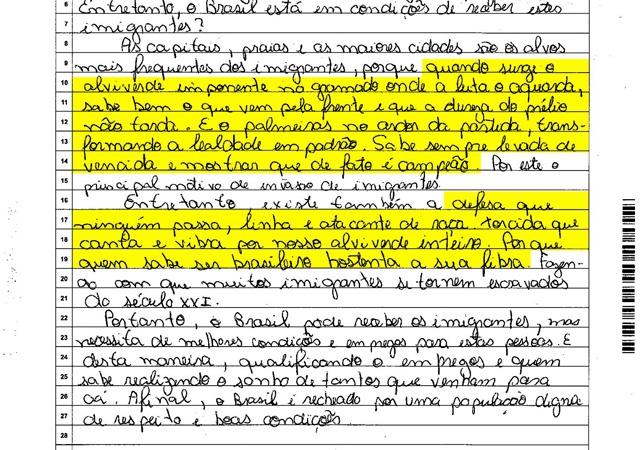 6 Entretanto, o Brasil está em condições de receber estes
7 imigrantes?
8 As capitais, praias e as maiores cidades são os alvos
9 mais frequentes dos imigrantes, porque quando surge o
10 alviverde imponente no gramado onde a luta o aguarda,
11 sabe bem o que vem pela frente e que a dureza do prélio
12 não tarda. E o palmeiras no ardor da partida, trans-
13 formando a lealdade em padrão. Sabe sempre levada de
14 vencida e mostrar que de fato é campeão. Por este o
15 principal motivo de invasão de imigrantes.
16 Entretanto, existe também a defesa que
17 ninguém passa, linha e atacante de raça. torcida que
18 canta e vibra por nosso alviverde inteiro. Por que
19 quem sabe ser brasileiro hostenta a sua fibra. Fazen-
20 do com que muitos imigrantes se tornem escravados
21 do século XXI.
22 Portanto, o Brasil pode receber os imigrantes, mas
23 necessita de melhores condições e empregos para estas pessoas. E
24 desta maneira, qualificando o empregos e quem
25 sabe realizando o sonho de tantos que venham para
26 cá. Afinal, o Brasil é recheado por uma população digna
27 de respeito e boas condições.
28